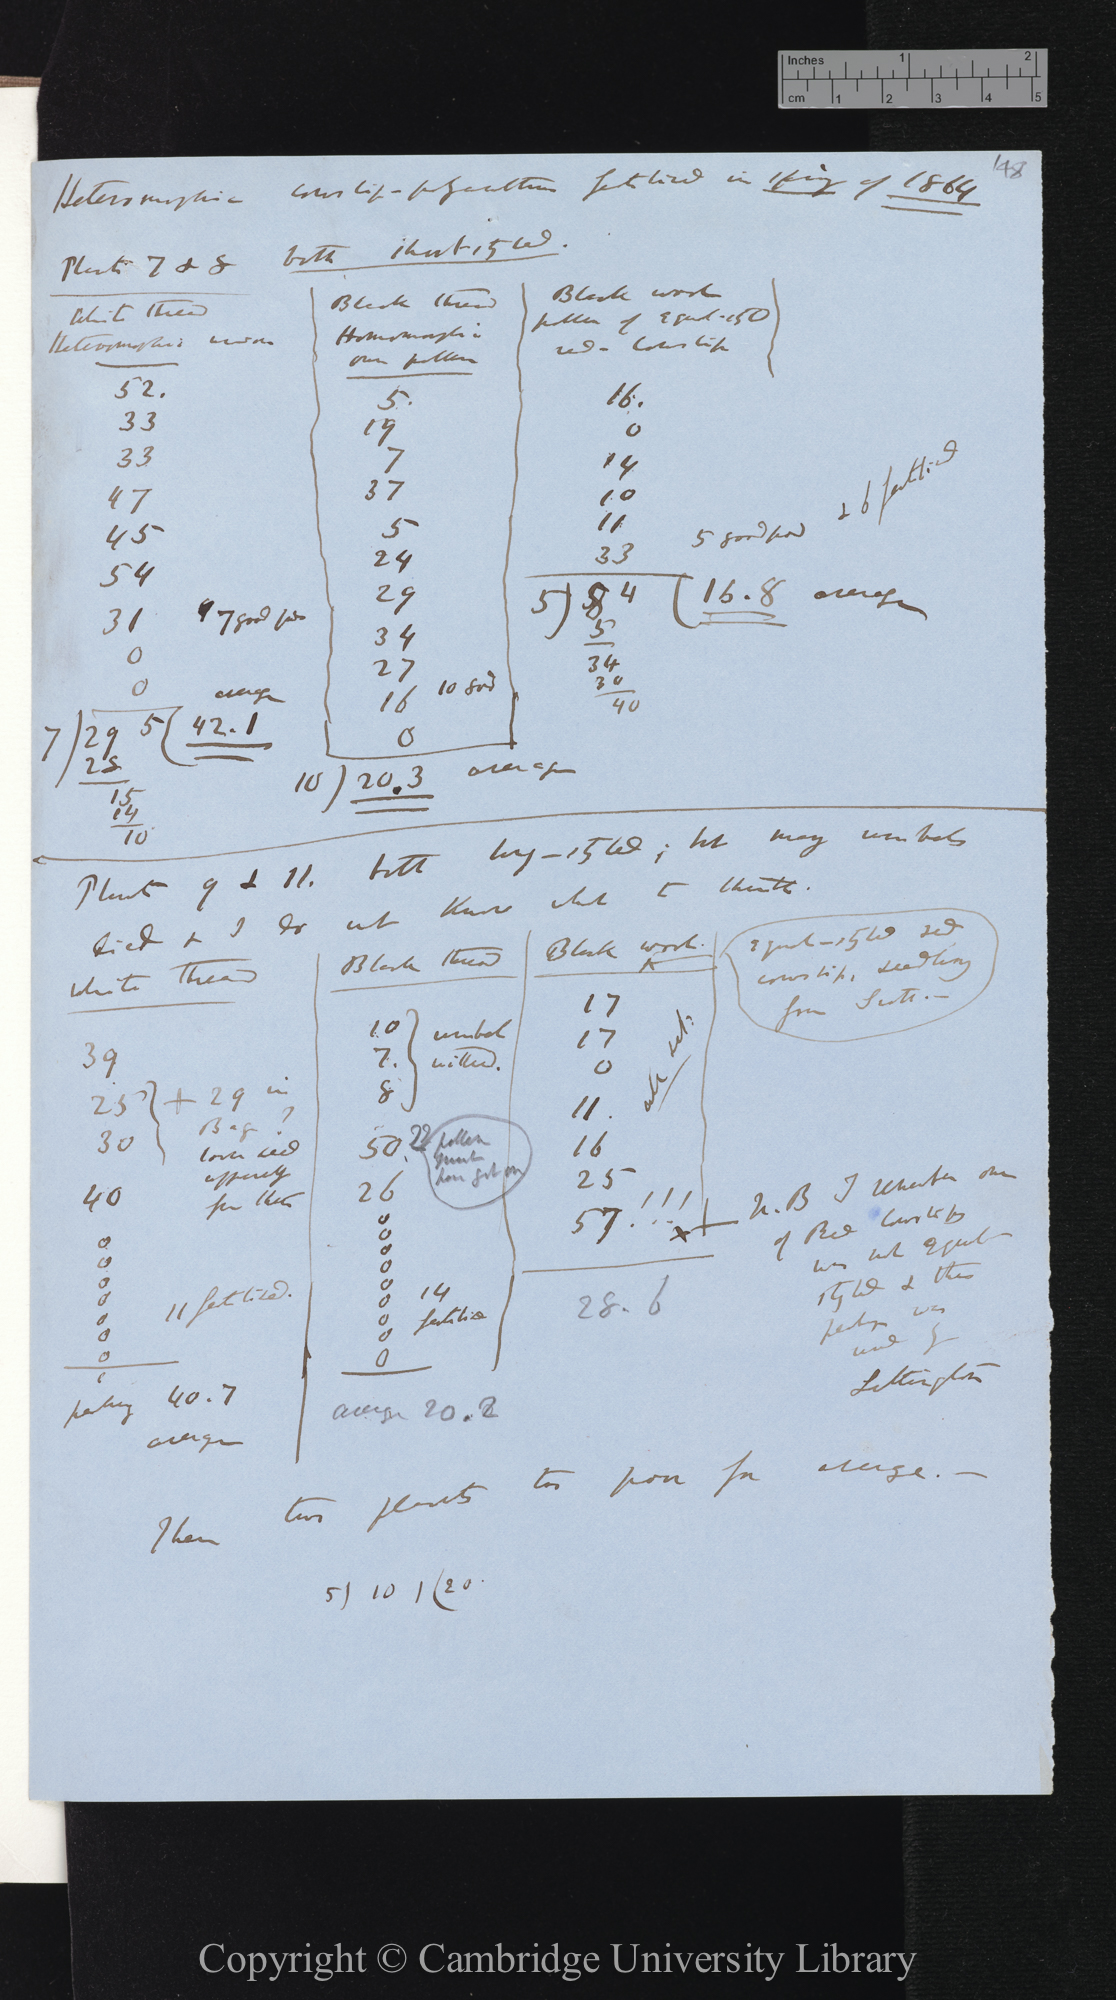 Inches 1 2
cm 1 2 3 4 5
148
Heteromorphic cowslip-polyanthus fertilised in spring of 1864
Plants 7 & 8 both short-styled.
White thread
Heteromorphic union
52.
33
33
47
45
54
31 7 good pods
0
0 average
7)295(42.1
28
15
14
10
Black thread
Homomorphic
own pollen
5.
19
7
37
5
24
29
34
27
16 10 good
0
10) 20.3 average
Black wool
pollen of equal-styled
red-cowslip
16.
0
14
10
11
33
5 good pod & 6 fertilised
5)84(16.8 average
5
34
30
40
Plants 9 & 11. both long-styled; but many umbels
died & I do not know what to think.
White thread
39
25 + 29 in
30 Bag?
loose seed
apparently
for these
40
0
0
0
0 11 fertilised.
0
0
0
perhaps 40.7
average
Black thread
10 umbel
7. withered.
8
50. 22 pollen
must
have got on
26
0
0
0
0
0 14
0 fertilised
0
0
average 20.2
Black wool.
equal-styled red
cowslip, seedling
from Scott.—
17
17
0
11.
16
25
57!!!
28.6
N.B I whether one
of Red Cowslips
was not equal-
styled & this
perhaps was
used by
Lettington
These two plants too poor for average.—
5) 101(20.
Copyright © Cambridge University Library